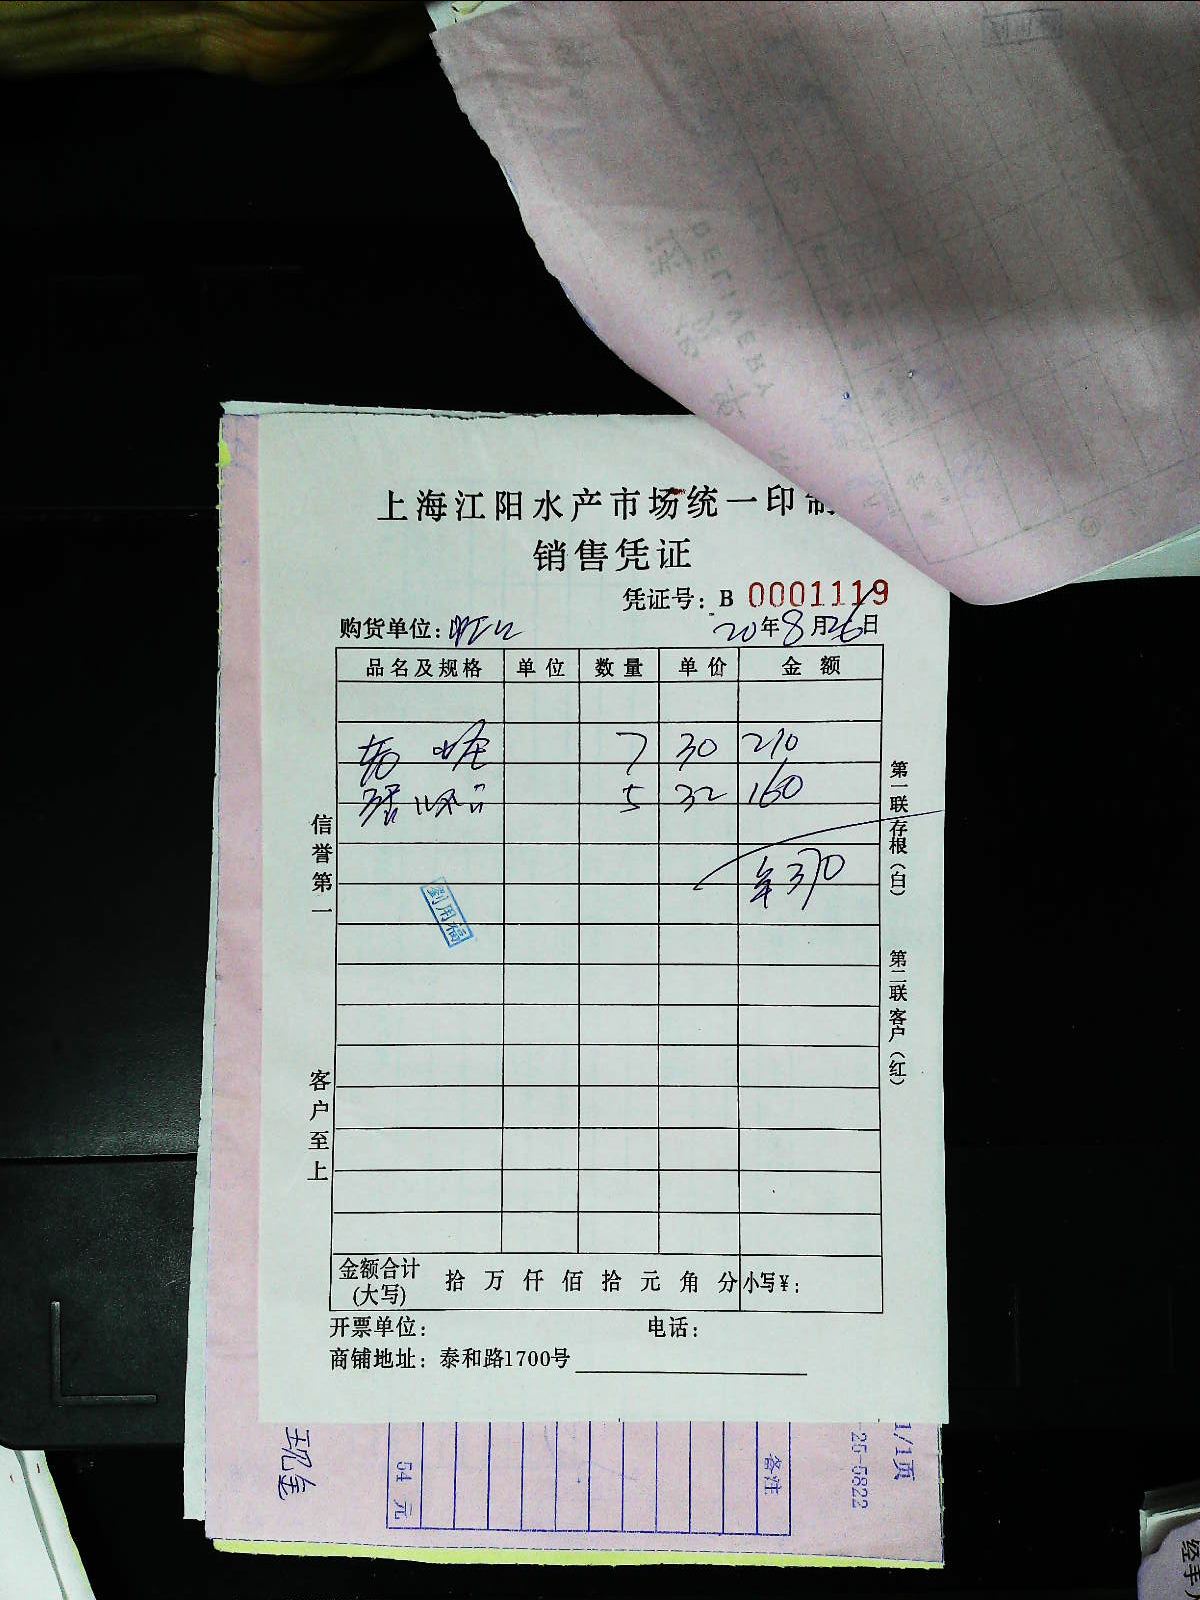 上海江阳水产市场统一印制
销售凭证
凭证号：B 0001119
购货单位：
20年8月26日
品名及规格 单位 数量 单价 金额
7 30 210
5 32 160
370
劉用福
信誉第一
客户至上
第一联存根（白）
第二联客户（红）
金额合计(大写) 拾 万 仟 佰 拾 元 角 分 小写¥：
开票单位： 电话：
商铺地址：泰和路1700号
现金
54 元
备注
1/1页
-25-5822
经手人